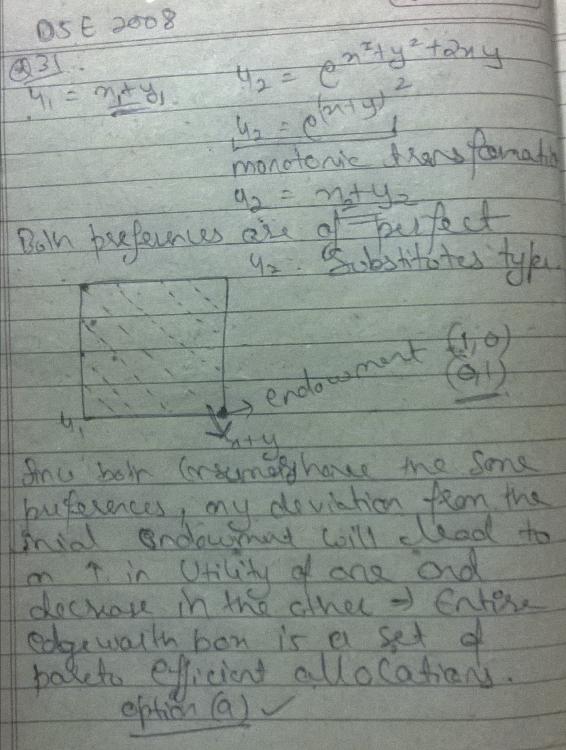 DSE 2008
Q31.
u₁ = x₁+y₁. u₂ = e^x²+y²+2xy
u₂ = e^(x+y)²
monotonic transformatio
u₂ = x₂+y₂
Both preferences are of perfect
u₂. Substitutes type.
endowment (1,0)
(0,1)
u₁
x+y
Since both consumers have the same
preferences, any deviation from the
inial endowment will lead to
an ↑ in Utility of one and
decrease in the other → Entire
edgewarth box is a set of
pareto efficient allocations.
option (a) ✓